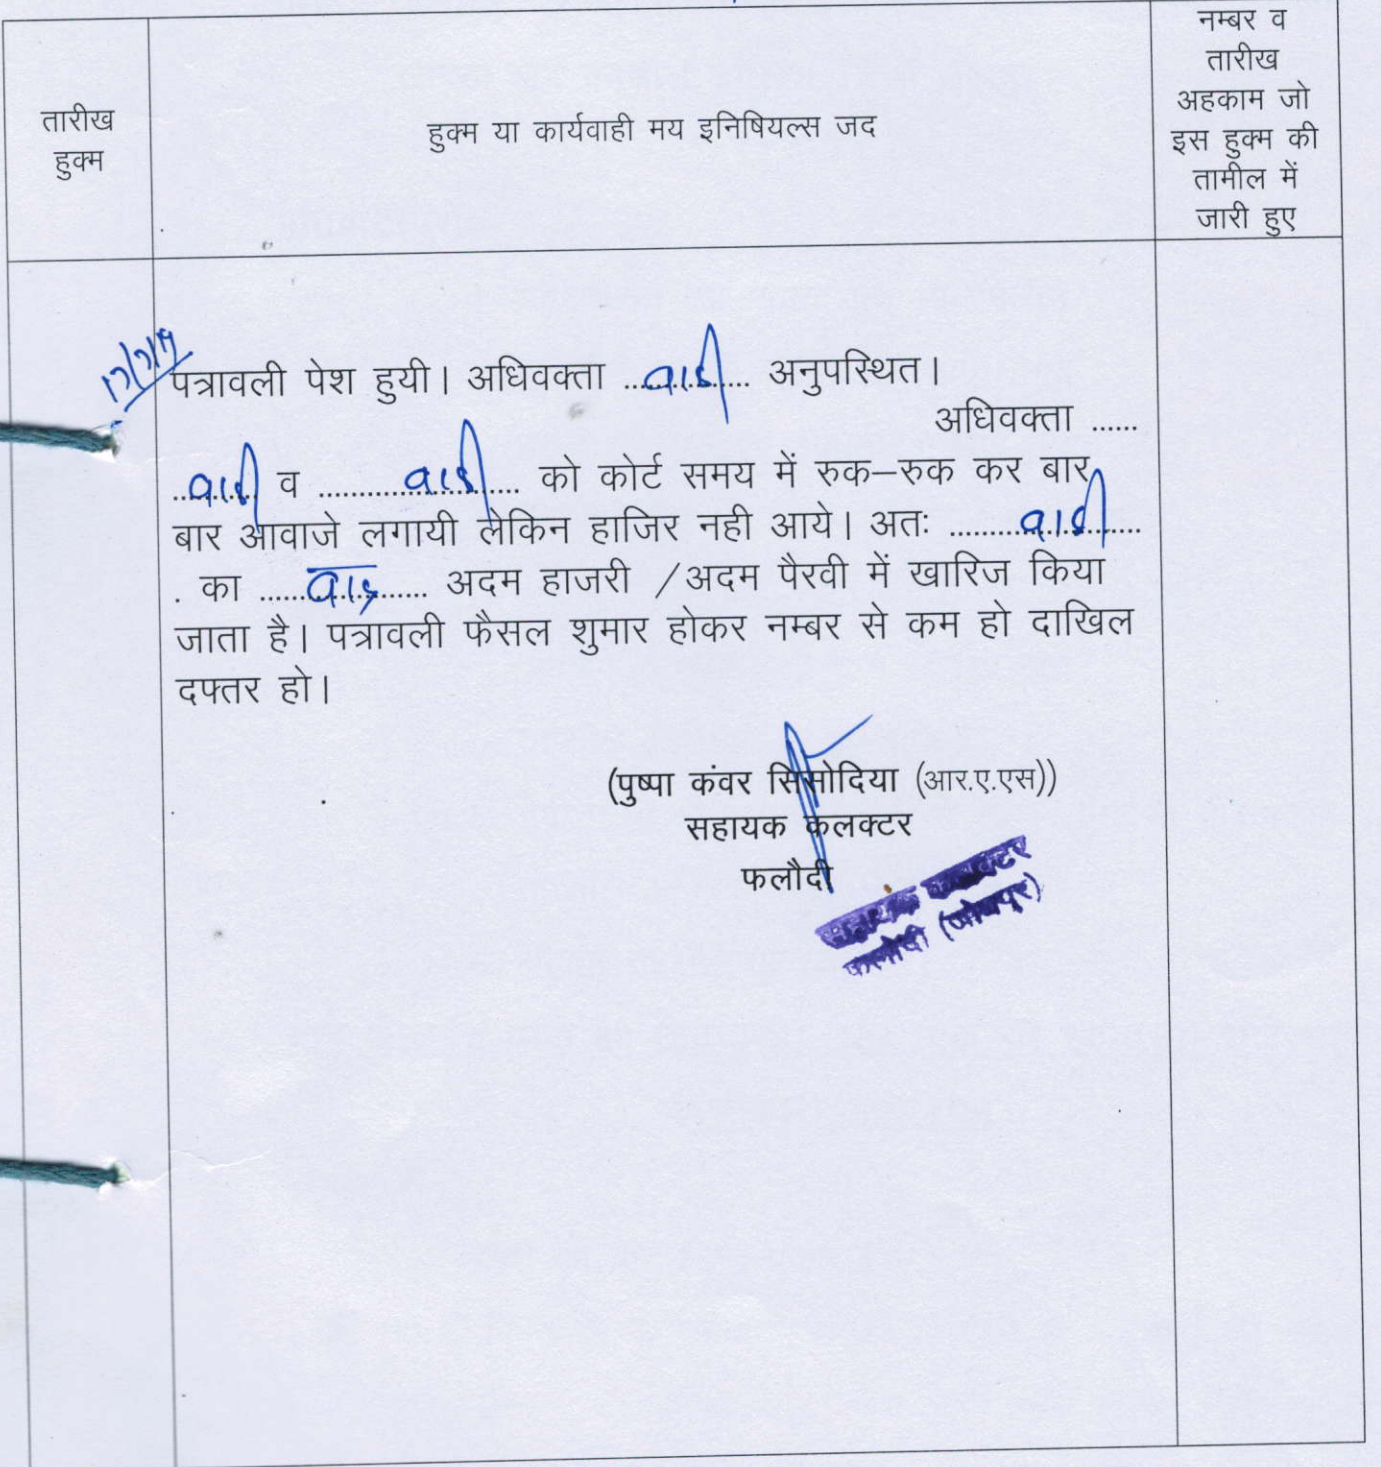 तारीख
हुक्म
हुक्म या कार्यवाही मय इनिषियल्स जद
नम्बर व
तारीख
अहकाम जो
इस हुक्म की
तामील में
जारी हुए
पत्रावली पेश हुयी। अधिवक्ता ....वादी.... अनुपस्थित।
अधिवक्ता ......
...वादी... व ........वादी.... को कोर्ट समय में रुक–रुक कर बार
बार आवाजे लगायी लेकिन हाजिर नही आये। अतः ........वादी....
. का .....वाद..... अदम हाजरी /अदम पैरवी में खारिज किया
जाता है। पत्रावली फैसल शुमार होकर नम्बर से कम हो दाखिल
दफ्तर हो।
(पुष्पा कंवर सिसोदिया (आर.ए.एस))
सहायक कलक्टर
फलौदी
सहायक कलक्टर
फलोदी (जोधपुर)